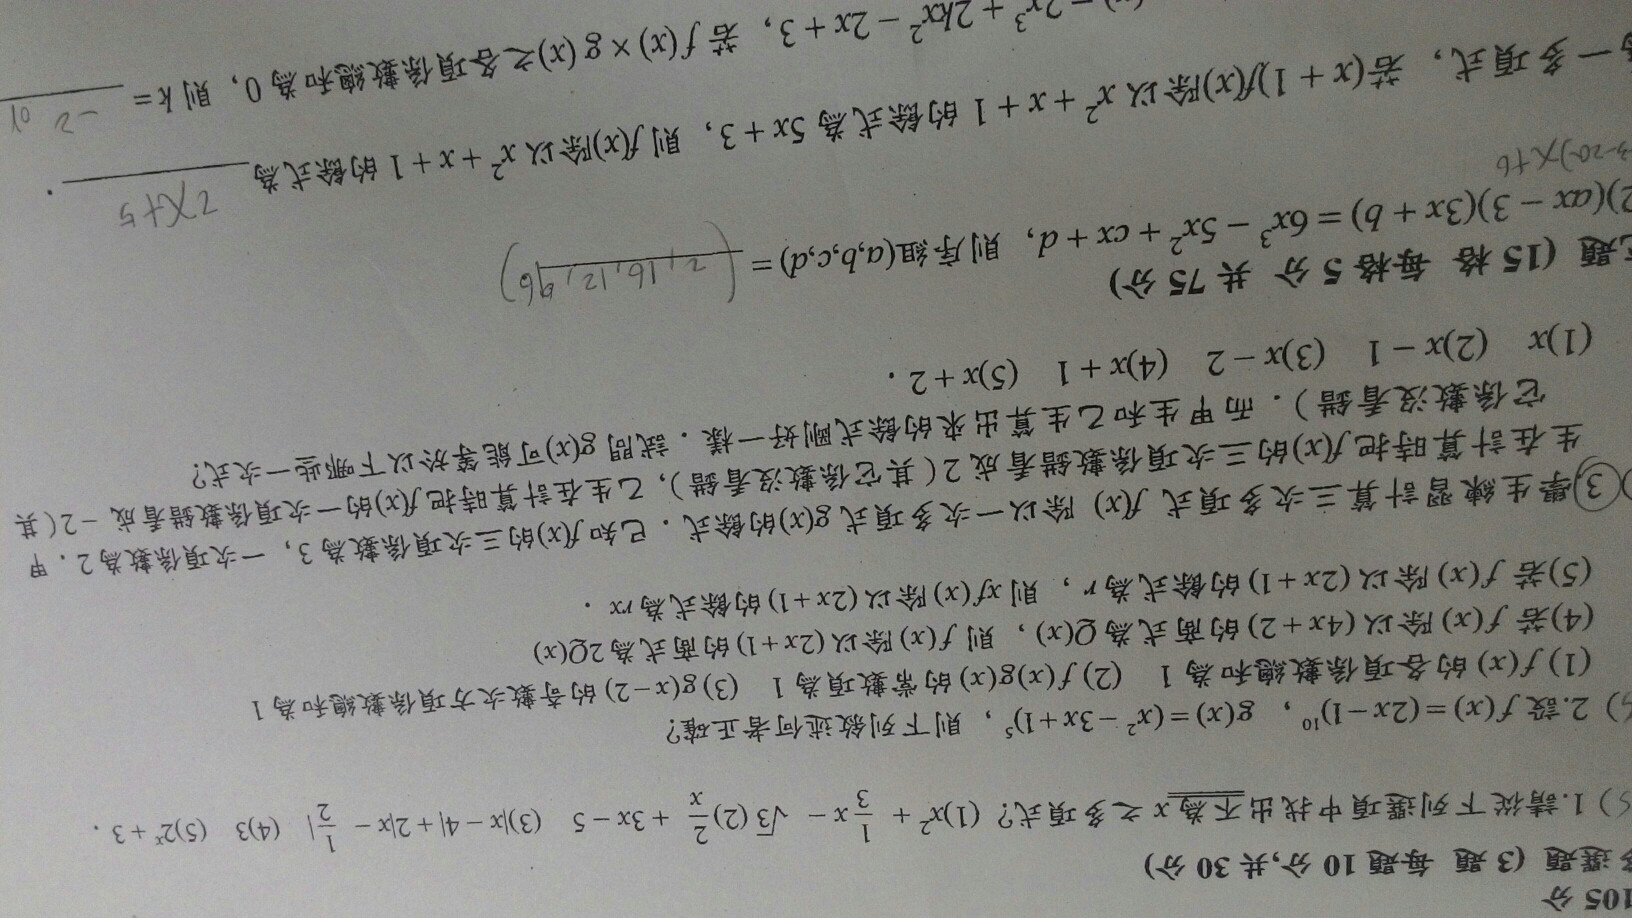 105 分
選題 (3 題 每題 10 分,共 30 分)
) 1.請從下列選項中找出不為 x 之多項式? (1)x² + 1/3 x − √3 (2) 2/x + 3x − 5 (3)|x − 4| + 2|x − 1/2| (4)3 (5)2ˣ + 3 .
) 2.設 f(x) = (2x−1)¹⁰ , g(x) = (x² − 3x+1)⁵ , 則下列敘述何者正確?
(1) f(x) 的各項係數總和為 1 (2) f(x)g(x) 的常數項為 1 (3) g(x−2) 的奇數次方項係數總和為 1
(4)若 f(x) 除以 (4x+2) 的商式為 Q(x) , 則 f(x) 除以 (2x+1) 的商式為 2Q(x)
(5)若 f(x) 除以 (2x+1) 的餘式為 r , 則 xf(x) 除以 (2x+1) 的餘式為 rx .
) 3.學生練習計算三次多項式 f(x) 除以一次多項式 g(x)的餘式.已知 f(x)的三次項係數為 3, 一次項係數為 2.甲
生在計算時把 f(x)的三次項係數錯看成 2 (其它係數沒看錯), 乙生在計算時把 f(x)的一次項係數錯看成 −2 (其
它係數沒看錯).而甲生和乙生算出來的餘式剛好一樣.試問 g(x)可能等於以下哪些一次式?
(1)x (2)x − 1 (3)x − 2 (4)x + 1 (5)x + 2 .
題 (15 格 每格 5 分 共 75 分)
2)(ax − 3)(3x + b) = 6x³ − 5x² + cx + d, 則序組(a,b,c,d) = (2, 16, 12, 96)
-2a)x+6
一多項式, 若(x + 1)f(x)除以 x² + x + 1 的餘式為 5x + 3, 則 f(x)除以 x² + x + 1 的餘式為 2x+5 .
2x³ + 2kx² − 2x + 3, 若 f(x) × g(x)之各項係數總和為 0, 則 k = -2 or